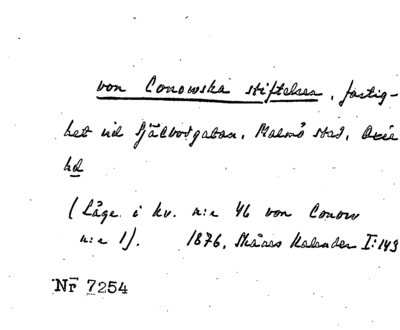 von Conowska stiftelsen, fastig-
het vid Själbodgatan, Malmö stad, Oxie
hd
(Läge i kv. n:r 46 von Conow
n:r 1). 1876, Skånes Kalender I:143
Nr 7254